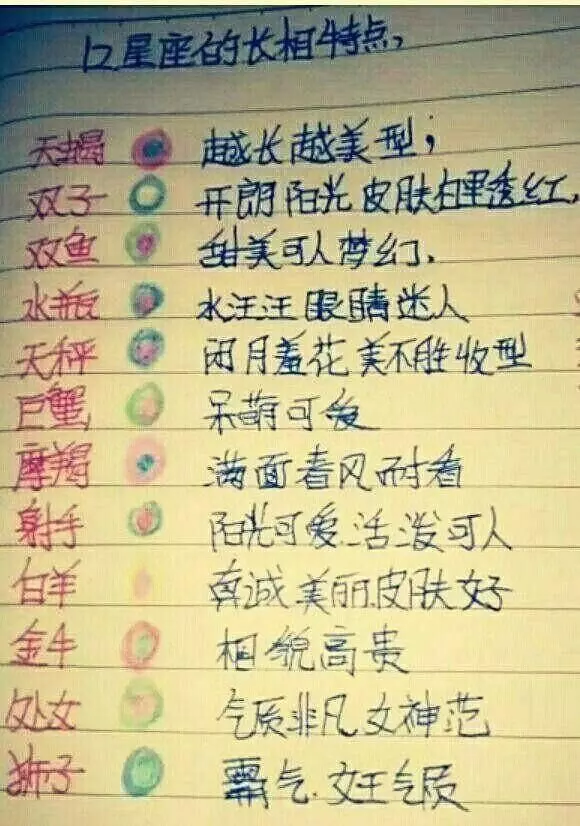 12星座的长相特点,
天蝎 越长越美型;
双子 开朗阳光皮肤白里透红,
双鱼 甜美可人梦幻.
水瓶 水汪汪眼睛迷人
天秤 闭月羞花美不胜收型
巨蟹 呆萌可爱
摩羯 满面春风耐看
射手 阳光可爱.活泼可人
白羊 真诚美丽.皮肤好
金牛 相貌高贵
处女 气质非凡.女神范
狮子 霸气.女王气质